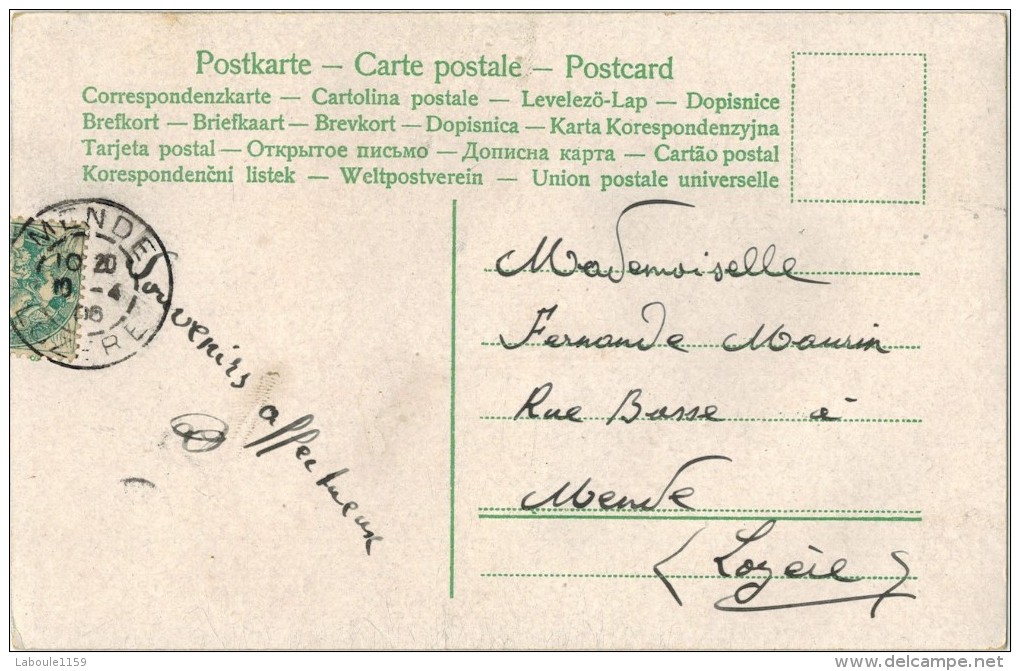 Postkarte – Carte postale – Postcard
Correspondenzkarte – Cartolina postale – Levelezö-Lap – Dopisnice
Brefkort – Briefkaart – Brevkort – Dopisnica – Karta Korespondenzyjna
Tarjeta postal – Открытое письмо – Дописна карта – Cartão postal
Korespondenčni listek – Weltpostverein – Union postale universelle
MENDE
10 20
3 -4
06
LOZERE
Souvenirs affectueux
Mademoiselle
Fernande Maurin
Rue Basse à
Mende
(Lozère)
Laboule1159
delcampe.net